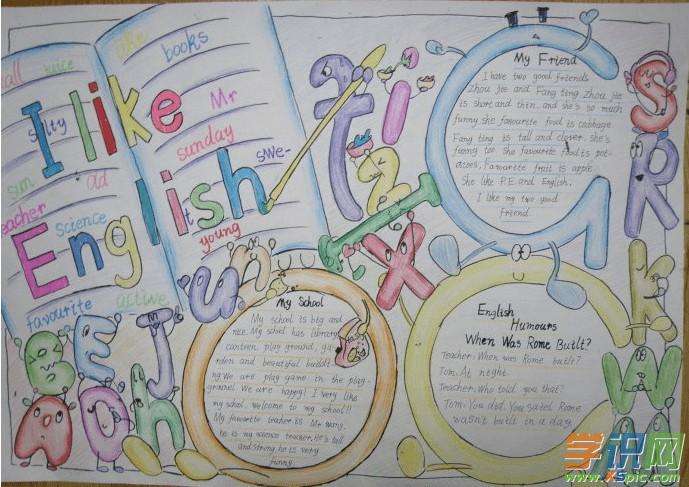 I like
English
all
juice
like
books
salty
Mr
sunday
swe-
sun
old
it
teacher
science
young
favourite
active
t
i
z
I
x
u
n
B
E
J
A
o
h
G
S
R
k
W
My Friend
I have two good friends
Zhou jie and Fang ting Zhou jie
is short and thin. and she's so much
funny she favourite food is cabbage
Fang ting is tall and clever she's
funny too She favourite food is pot-
atoes, Favourite fruit is apple
She like P.E and English.
I like my two good
Friend.
My School
My school is big and
nice. My school has library,
canteen, play ground, gar-
rden and beautiful buildi-
ng. We are play game in the play-
ground. We are happy! I very like
my school. Welcome to my school!!
My favourite teacher is Mr Wang,
he is my science teacher. He's tall
and strong, he is very
funny.
English
Humours
When Was Rome Built?
Teacher: When was Rome built?
Tom: At night.
Teacher: Who told you that?
Tom: You did. You sated Rome
wasn't built in a day
学识网
www.XSpic.com